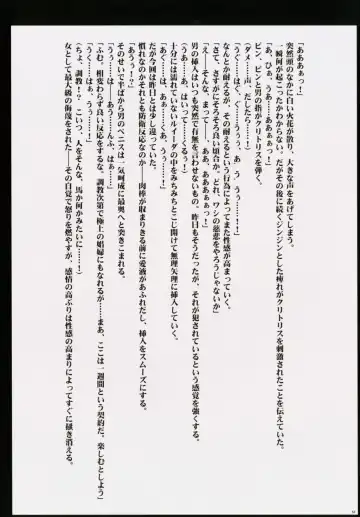 「あああぁっ！」
突然頭のなかに白い火花が散り、大きな声をあげてしまう。
一瞬何が起こったかわからない。だがその後に続くジンジンとした痺れがクリトリスを刺激されたことを伝えていた。
「あ、ひぁ、うぁ、あああぁぁっ！」
ピン、ピンと男の指がクリトリスを弾く。
「ダメ……声、だしたら……！」
「うぅ……はぁ、ぐぅぅ……う、あ、う、うぅ……！」
なんとか耐えるが、その耐えるという行為によってまた性感が高まっていく。
「さて、さすがにそろそろ良い頃合か。どれ、ワシの慈悲をやろうじゃないか」
「え、そんな、まって……あ、ああああぁぁっ！」
男の挿入はいつも突然で有無を言わせないもの。昨日もそうだったが、それが犯されているという感覚を強くする。
「うあ……あ、はいって、くるぅ……！」
十分には濡れていないルイーダの中をみちみちとこじ開けて無理矢理に挿入していく。
「あぐ……は、あぁ……くあ、うぅ……！」
だが今回は昨日とは少し違っていた。
慣れなのかそれとも防衛反応なのか――肉棒が収まりきる前に愛液があふれだし、挿入をスムーズにする。
「あうぅ！？」
そのせいで半ばから男のペニスは一気呵成に最奥へと突きこまれる。
「うぅ……は、あぅ……んふ、はぁ……！」
「ふむ、相変わらず良い反応をするな。調教次第で極上の娼婦にもなれるが……まあ、ここは一週間という契約だ、楽しむとしよう」
「うく……はぁ、うぅ……！」
（ちょ、調教！？　こいつ、人をそんな、馬か何かみたいに……！）
女として最大級の侮辱をされた――その自覚で怒りを燃やすが、感情の高ぶりは性感の高まりによってすぐに掻き消える。